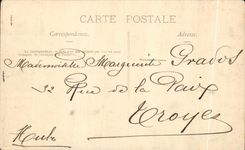 CARTE POSTALE
Correspondance Adresse
Mademoiselle Marguerite Grados
32 Rue de la Paix
Troyes
Aube